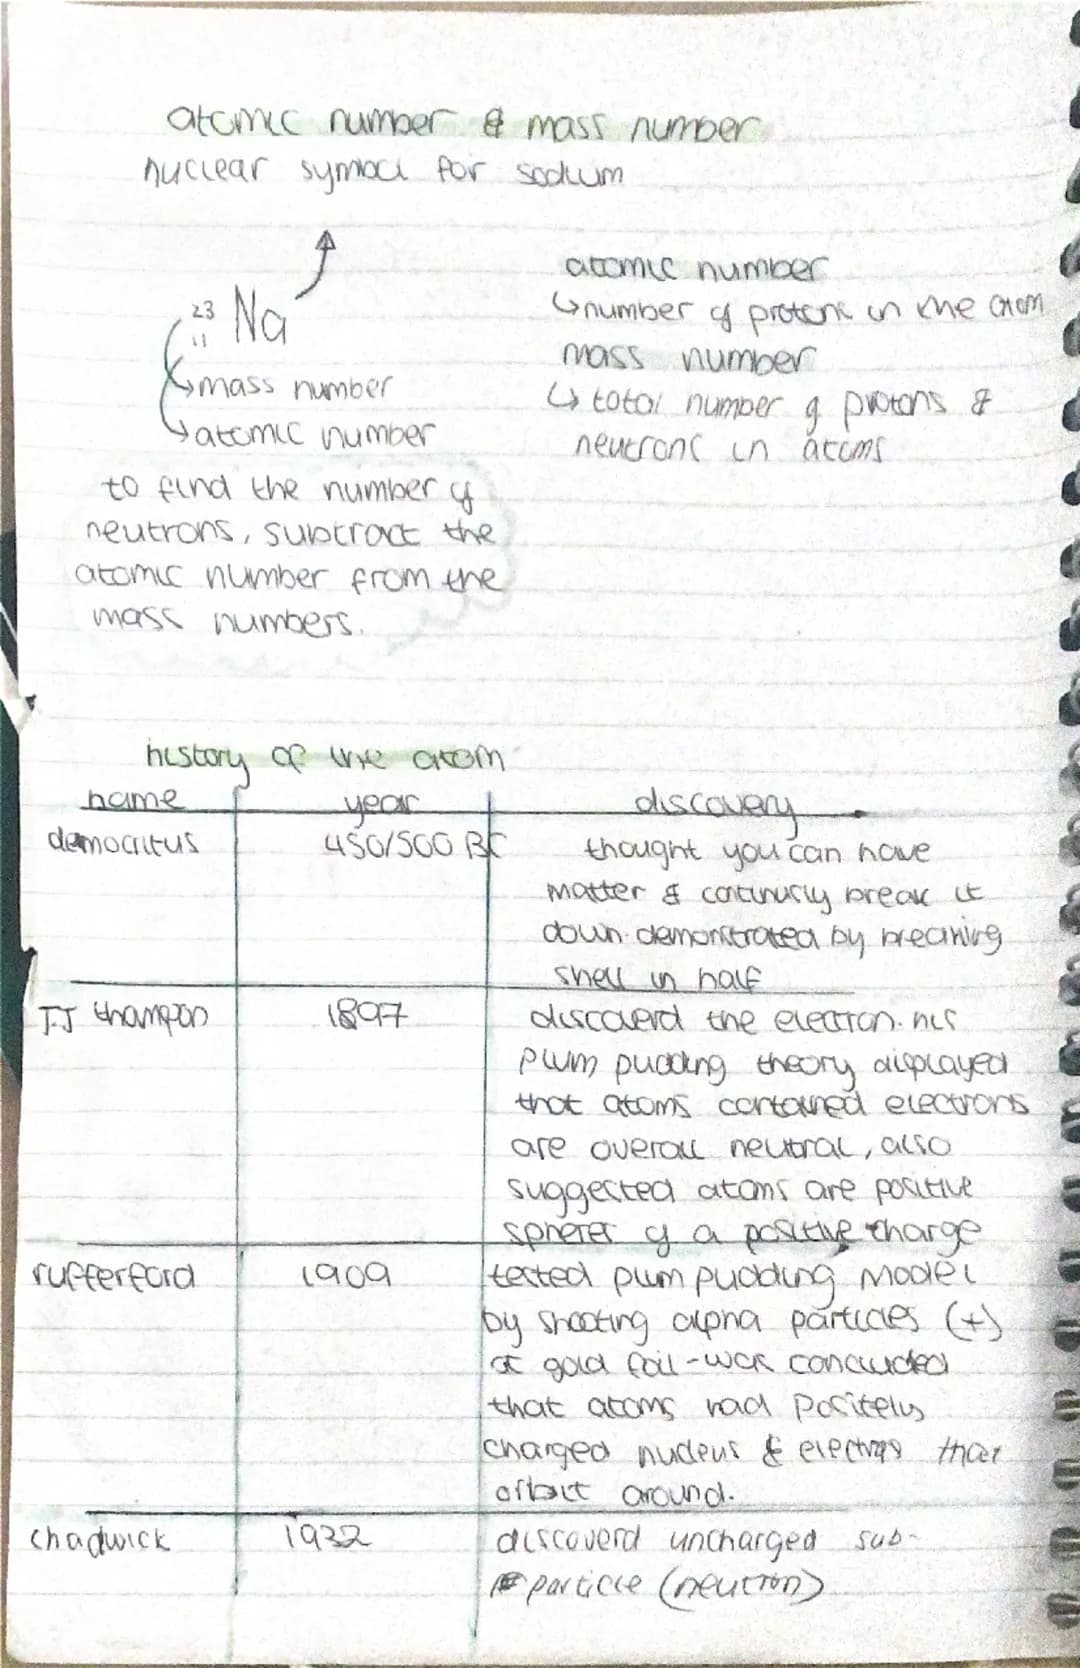 atomic number & mass number
nuclear symbol for sodium
23
11 Na
mass number
atomic number
atomic number
number of protons in the atom
mass number
total number of protons &
neutrons in atoms
to find the number of
neutrons, subtract the
atomic number from the
mass numbers.
history of the atom
name year discovery
democritus 450/500 BC thought you can have
matter & continusly break it
down. demonstrated by breaking
shell in half
J.J thompon 1897 discoverd the electron. his
plum pudding theory displayed
that atoms contained electrons
are overall neutral, also
suggested atoms are positive
spheres of a positive charge
rufferford 1909 tested plum pudding model
by shooting alpha particles (+)
at gold foil - was concluded
that atoms had positely
charged nucleus & electrons that
orbit around.
chadwick 1932 discoverd uncharged sub-
particle (neutron)